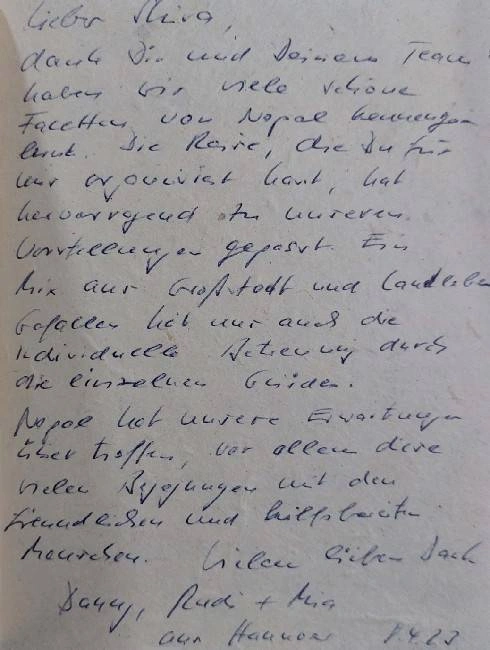 Lieber Shiva,
dank Dir und Deinem Team
haben wir viele schöne
Facetten von Nepal kennenge
lernt. Die Reise, die Du für
uns organisiert hast, hat
hervorragend zu unseren
Vorstellungen gepasst. Ein
Mix aus Großstadt und Landleben
Gefallen hat uns auch die
individuelle Betreuung durch
die einzelnen Guides.
Nepal hat unsere Erwartungen
übertroffen, vor allem diese
vielen Begegnungen mit den
freundlichen und hilfsbereiten
Menschen. Vielen lieben Dank
Danny, Rudi + Mia
aus Hannover 4.23